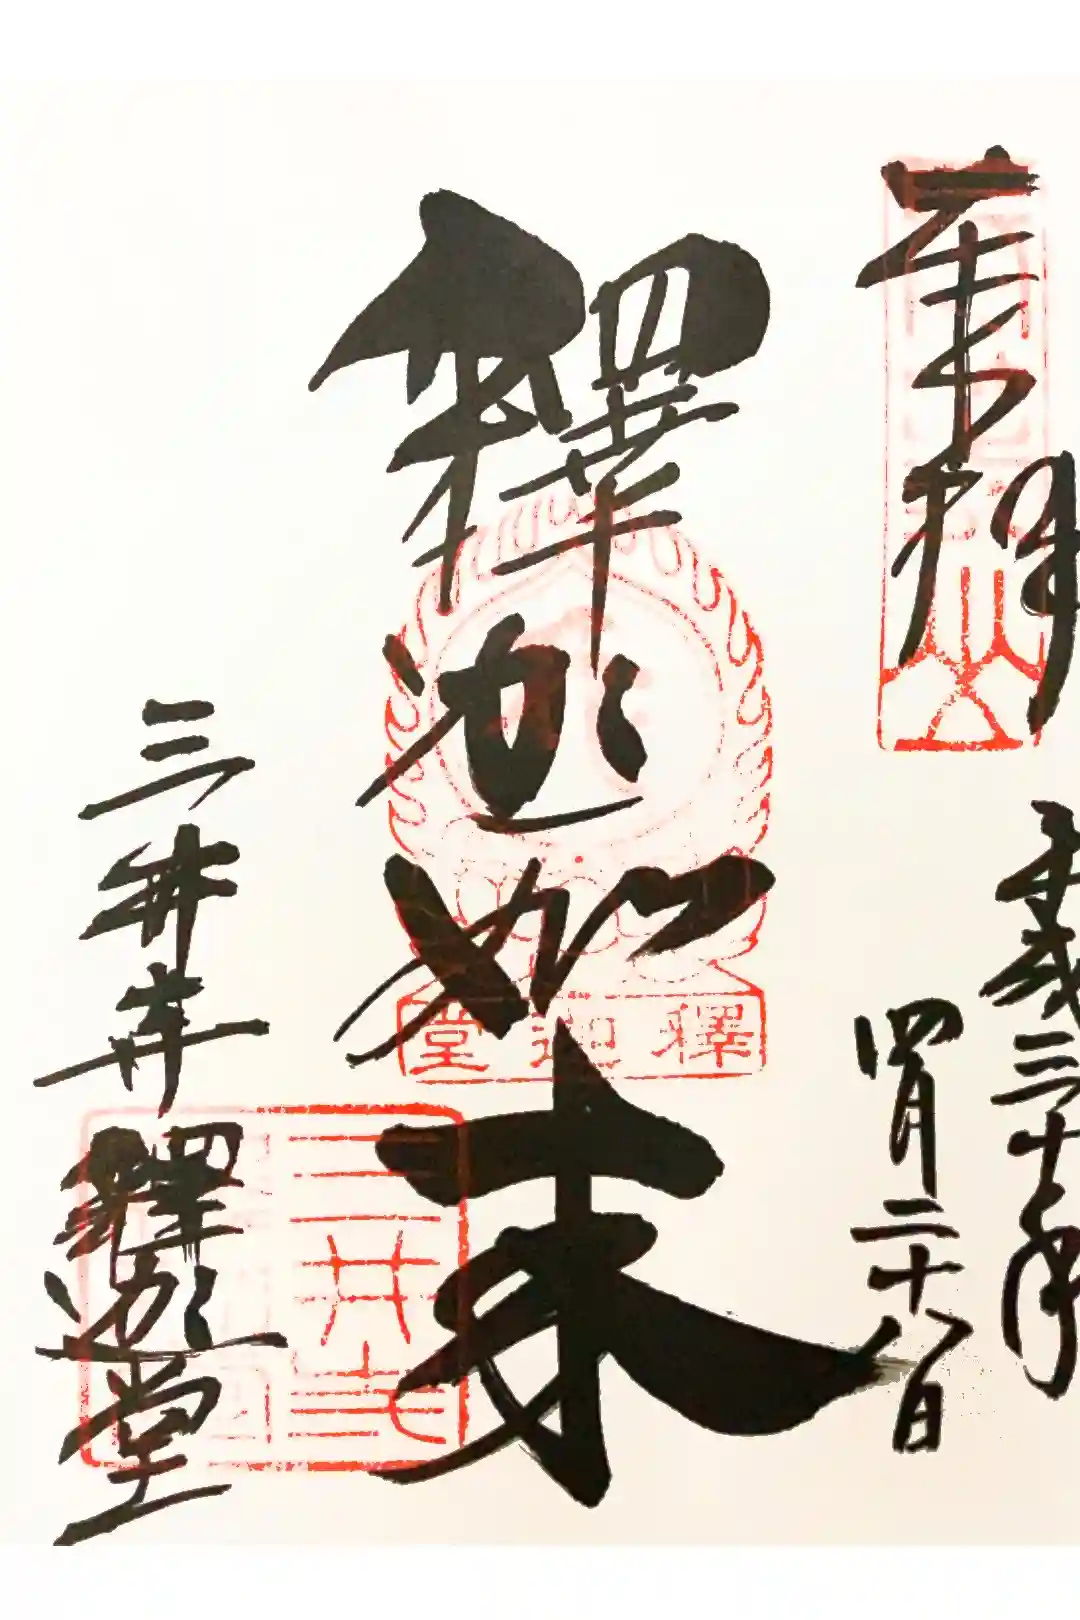 奉拝
平成三十年
四月二十八日
釋迦如来
釋迦堂
三井寺
三井寺釋迦堂